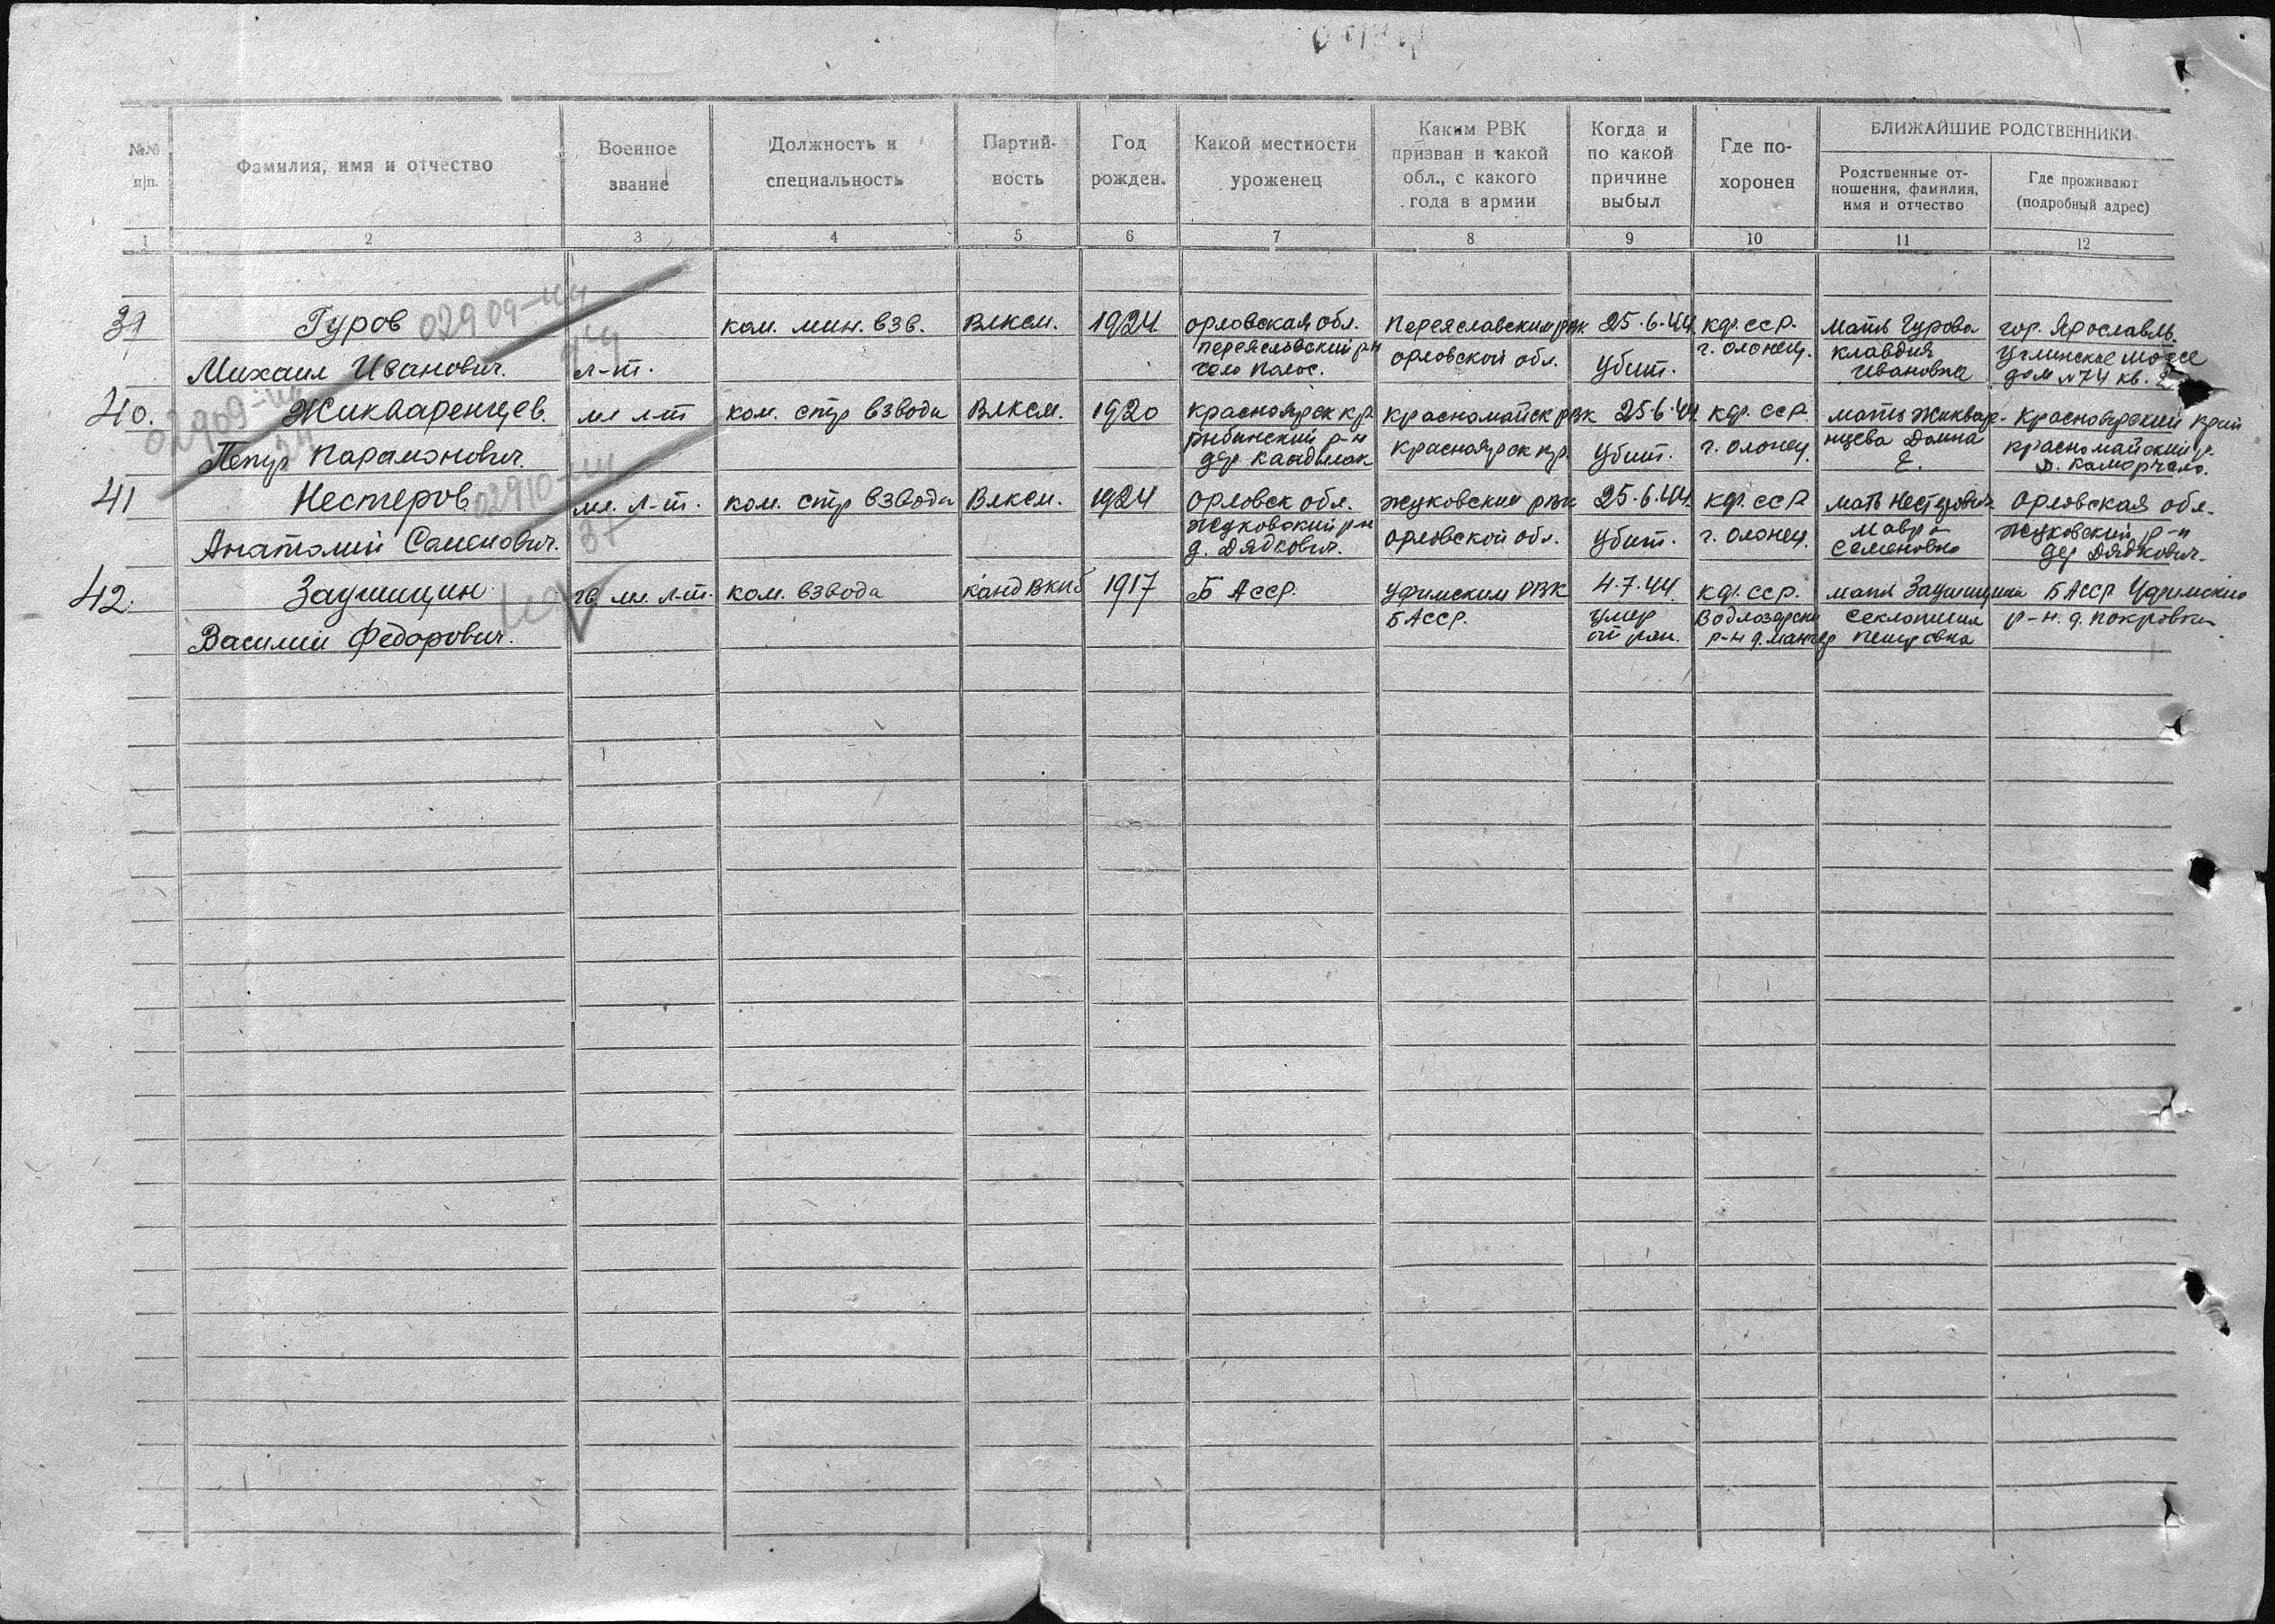 №№ п|п.
Фамилия, имя и отчество
Военное звание
Должность и специальность
Партийность
Год рожден.
Какой местности уроженец
Каким РВК призван и какой обл., с какого года в армии
Когда и по какой причине выбыл
Где похоронен
БЛИЖАЙШИЕ РОДСТВЕННИКИ
Родственные отношения, фамилия, имя и отчество
Где проживают (подробный адрес)
1 2 3 4 5 6 7 8 9 10 11 12
39 Гуров 02909-ич ком. мин. взв. Влксм. 1924 Орловская обл. Переяславским рвк 25.6.44 кф. сср. мать Гурова гор. Ярославль.
Михаил Иванович. л-т. село Орловской обл. Убит. г. Олонец. Клавдия Ивановна Углинское шоссе дом №74 кв.
40. 02909-ич Жикваренцев. мл л-т ком. стр взвода Влксм. 1920 Красноярск кр. Красномайск рвк 25.6.44 кф. сср. мать Жиквар- Красноярский край
Петр Парамонович. Рыбинский р-н дер Красноярск кр. Убит. г. Олонец. нцева Домна Е. Красномайский р.
41 Нестеров 02910-ич мл. л-т. ком. стр взвода Влксм. 1924 Орловск обл. Жуковским рвк 25.6.44 кф. сср мать Орловская обл.
Анатолий Семенович. 37 Жуковский р-н д. Дядкович. Орловской обл. Убит. г. Олонец. Мавра Семеновна Жуковский р-н дер Дядкович.
42. Заушицин гв. мл. л-т. ком. взвода канд вкпб 1917 Б Асср. Уфимским РВК 4.7.44 кф. сср. Б АССР Уфимский
Василий Федорович. БАССР. умер от ран. р-н д. Петровна р-н. д. Покровка